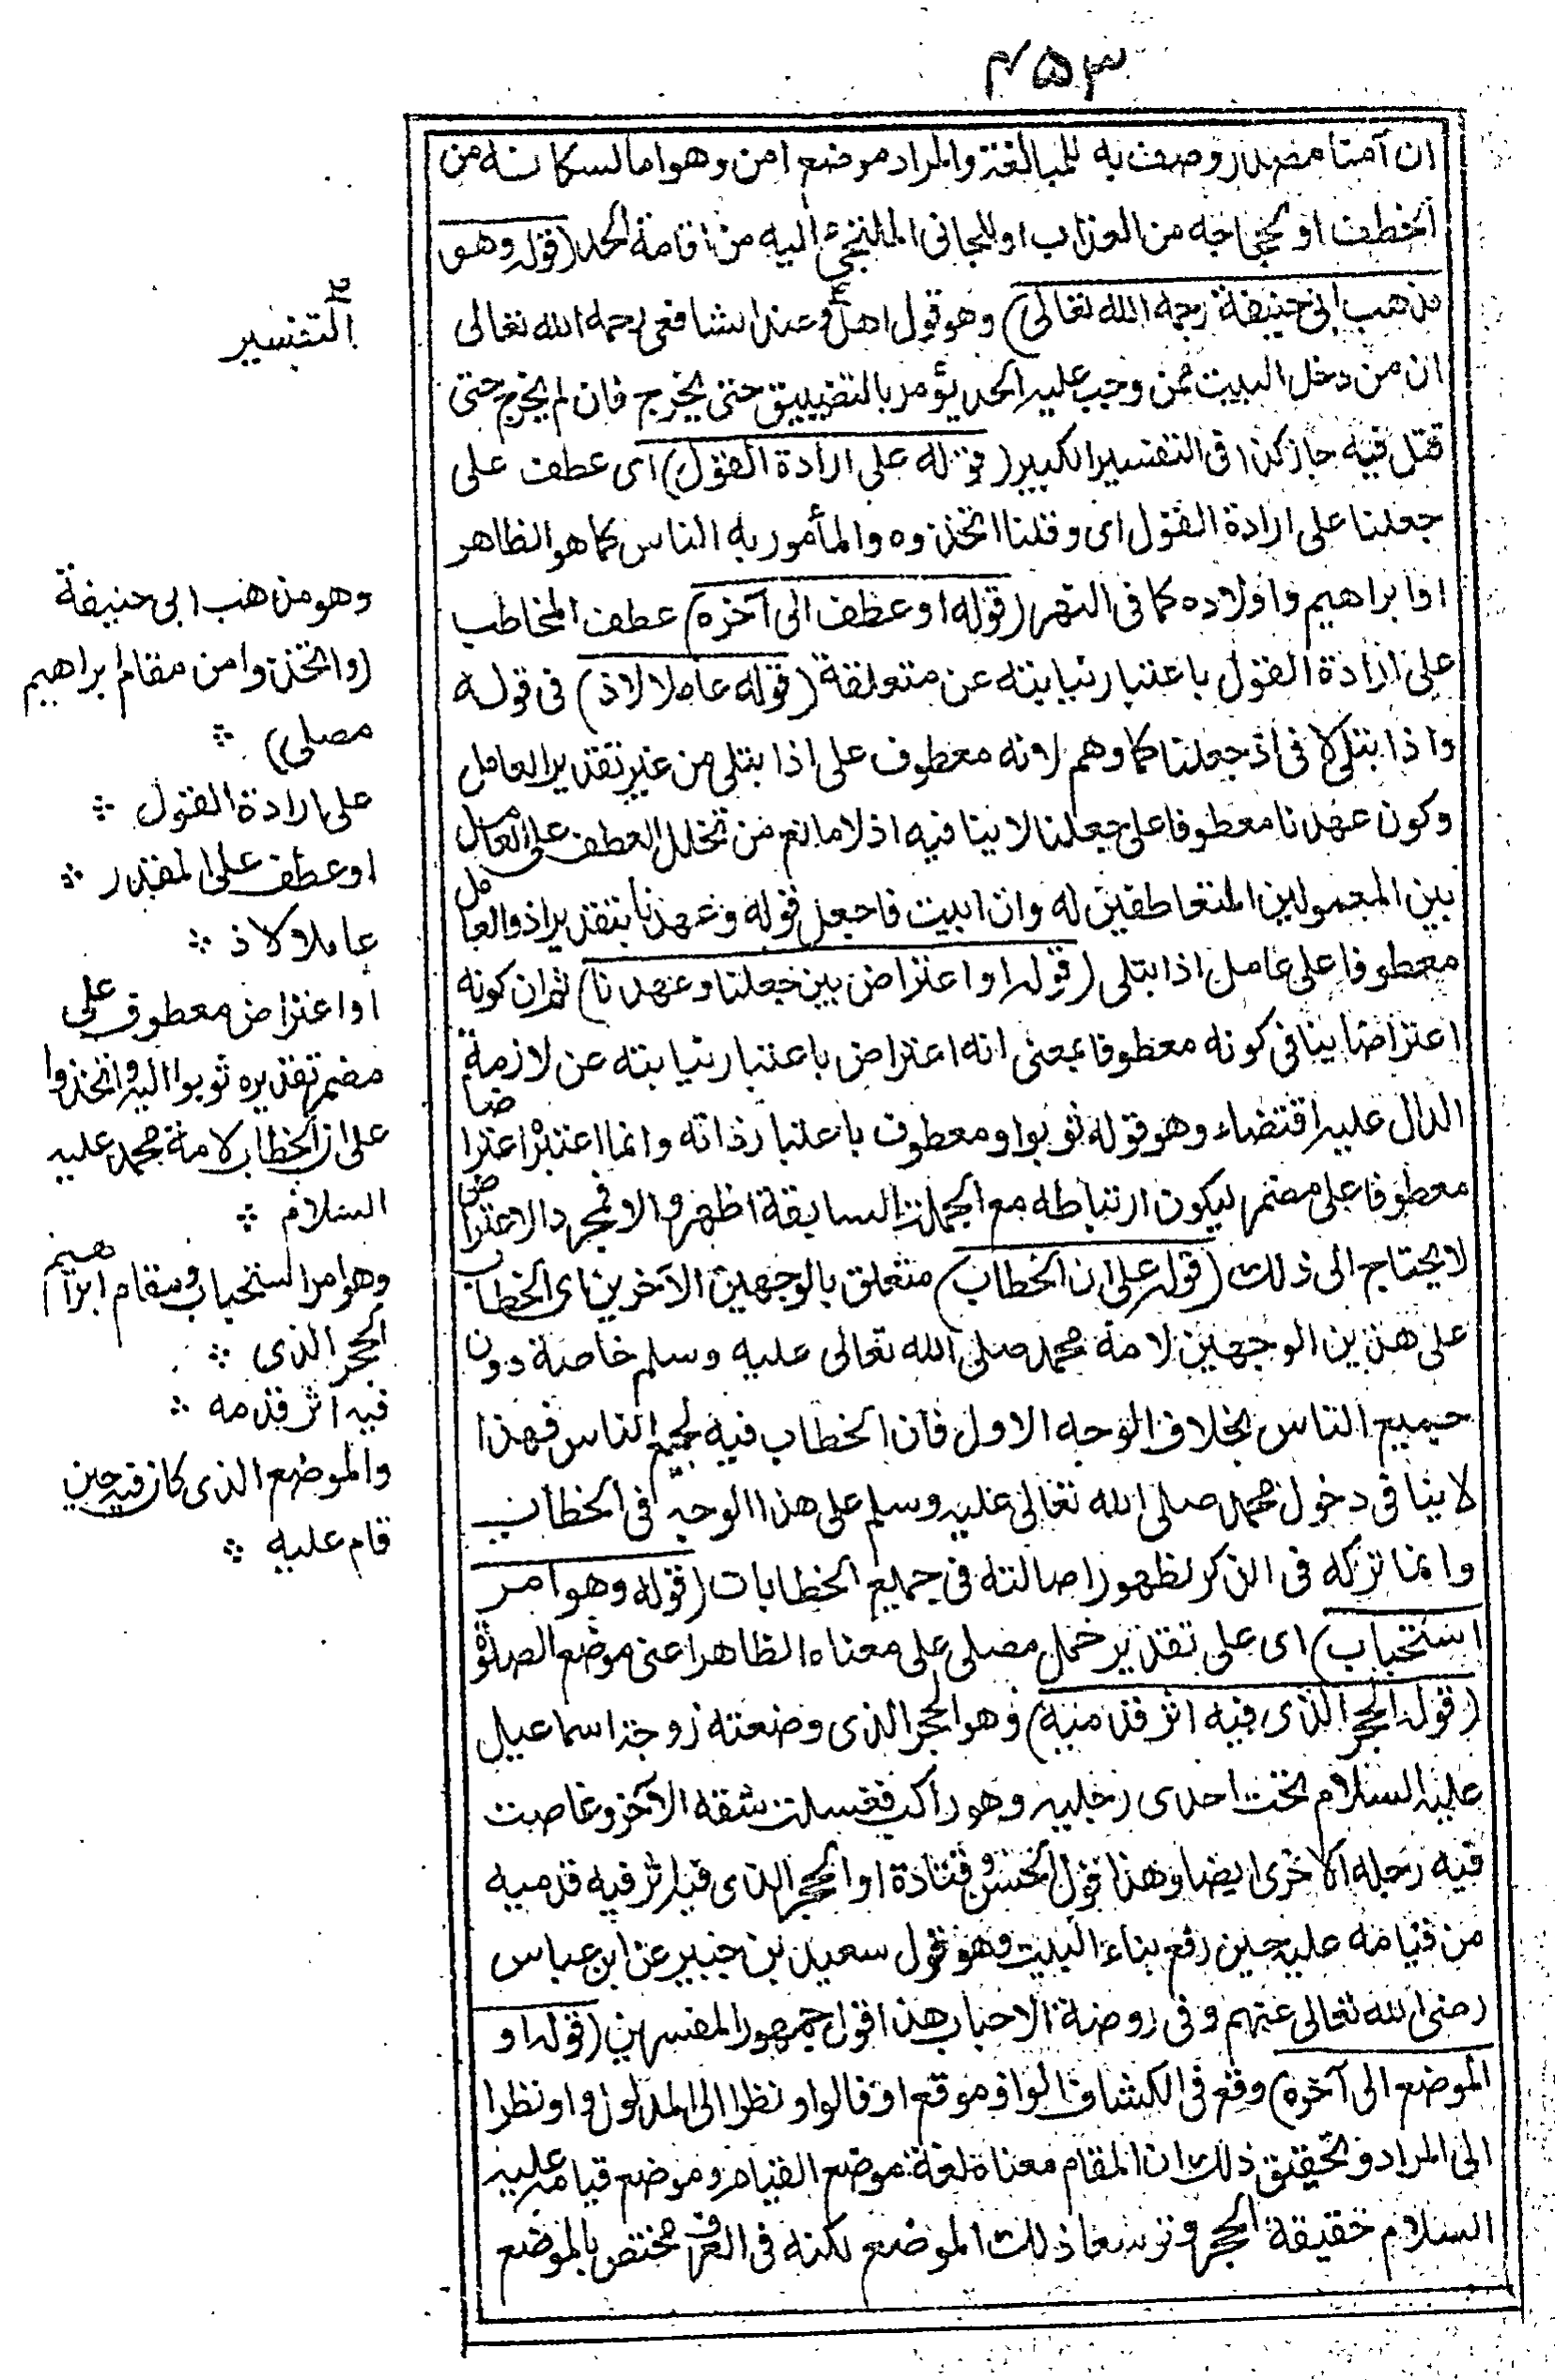 ۴۵۳
ان آمنا مصدر وصف به للمبالغة والمراد موضع امن وهو اما لسكانه من
الخطف او لحجاجه من العذاب او للجانى الملتجئ اليه من اقامة الحد (قوله وهو
مذهب ابى حنيفة رحمه الله تعالى) وهو قول اهل وعند الشافعى رحمه الله تعالى
ان من دخل البيت ممن وجب عليه الحد يؤمر بالتضييق حتى يخرج فان لم يخرج حتى
قتل فيه جاز كذا فى التفسير الكبير (قوله على ارادة القول) اى عطف على
جعلنا على ارادة القول اى وقلنا اتخذوه والمأمور به الناس كما هو الظاهر
او ابراهيم واولاده كما فى النهر (قوله او عطف الى آخره) عطف المخاطب
على ارادة القول باعتبار نيابته عن متعلقة (قوله عاملا لاذ) فى قوله
واذ ابتلى لا فى اذ جعلنا كما وهم لانه معطوف على اذ ابتلى من غير تقدير العامل
وكون عهدنا معطوفا على جعلنا لا ينافيه اذ لا مانع من تخلل العطف على العامل
بين المعمولين المتعاطفين له وان ابيت فاجعل قوله وعهدنا بتقدير اذ والعامل
معطوفا على عامل اذ ابتلى (قوله او اعتراض بين جعلنا وعهدنا) ثم ان كونه
اعتراضا ينافى كونه معطوفا بمعنى انه اعتراض باعتبار نيابته عن لازمة
الدال عليه اقتضاء وهو قوله ثوبوا ومعطوف باعتبار ذاته وانما اعتبر اعتراضا
معطوفا على مضمر ليكون ارتباطه مع الجملة السابقة اظهر والا فمجرد الاعتراض
لا يحتاج الى ذلك (قوله على ان الخطاب) متعلق بالوجهين الآخرين اى الخطاب
على هذين الوجهين لامة محمد صلى الله تعالى عليه وسلم خاصة دون
جميع الناس بخلاف الوجه الاول فان الخطاب فيه لجميع الناس فهذا
لا ينافى دخول محمد صلى الله تعالى عليه وسلم على هذا الوجه فى الخطاب
وانما تركه فى الذكر لظهور اصالته فى جميع الخطابات (قوله وهو امر
استحباب) اى على تقدير حمل مصلى على معناه الظاهر اعنى موضع الصلوة
(قوله الحجر الذى فيه اثر قدميه) وهو الحجر الذى وضعته زوجة اسماعيل
عليه السلام تحت احدى رجليه وهو راكب فغسلت شقه الآخر وغاصت
فيه رجله الاخرى ايضا وهذا قول الحسن وقتادة او الحجر الذى فيه اثر فيه قدميه
من قيامه عليه حين رفع بناء البيت وهو قول سعيد بن جبير عن ابن عباس
رضى الله تعالى عنهم وفى روضة الاحباب هذا قول جمهور المفسرين (قوله او
الموضع الى آخره) وقع فى الكشاف الواو موقع او فالواو نظرا الى المدلول واو نظرا
الى المراد وتحقيق ذلك ان المقام معناه لغة موضع القيام وموضع قيامه عليه
السلام حقيقة الحجر وتوسعا ذلك الموضع لكنه فى العرف مختص بالموضع
التفسير
وهو مذهب ابى حنيفة
(واتخذوا من مقام ابراهيم
مصلى)
على ارادة القول
او عطف على المقدر
عاملا لاذ
او اعتراض معطوف على
مضمر تقديره ثوبوا اليه واتخذوا
على ان الخطاب لامة محمد عليه
السلام
وهو امر استحباب ومقام ابراهيم
الحجر الذى
فيه اثر قدمه
والموضع الذى كان فيه حين
قام عليه